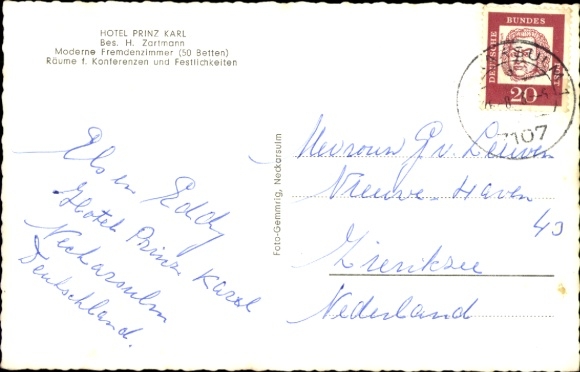 HOTEL PRINZ KARL
Bes. H. Zartmann
Moderne Fremdenzimmer (50 Betten)
Räume f. Konferenzen und Festlichkeiten
DEUTSCHE BUNDESPOST
20
7107
Els en Eddy
Hotel Prinz Karel
Neckarsulm
Deutschland.
Foto-Gemmrig, Neckarsulm
Mevrouw G v. Leeuwen
Nieuwe-Haven
43
Zierikzee
Nederland